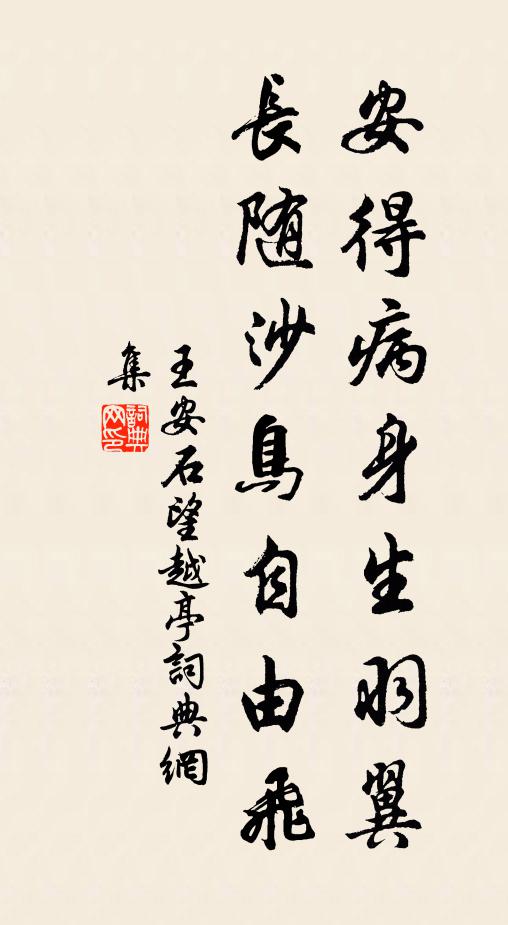 安得病身生羽翼
長随沙鳥自由飛
王安石望越亭詞典網
集
詞典
网印